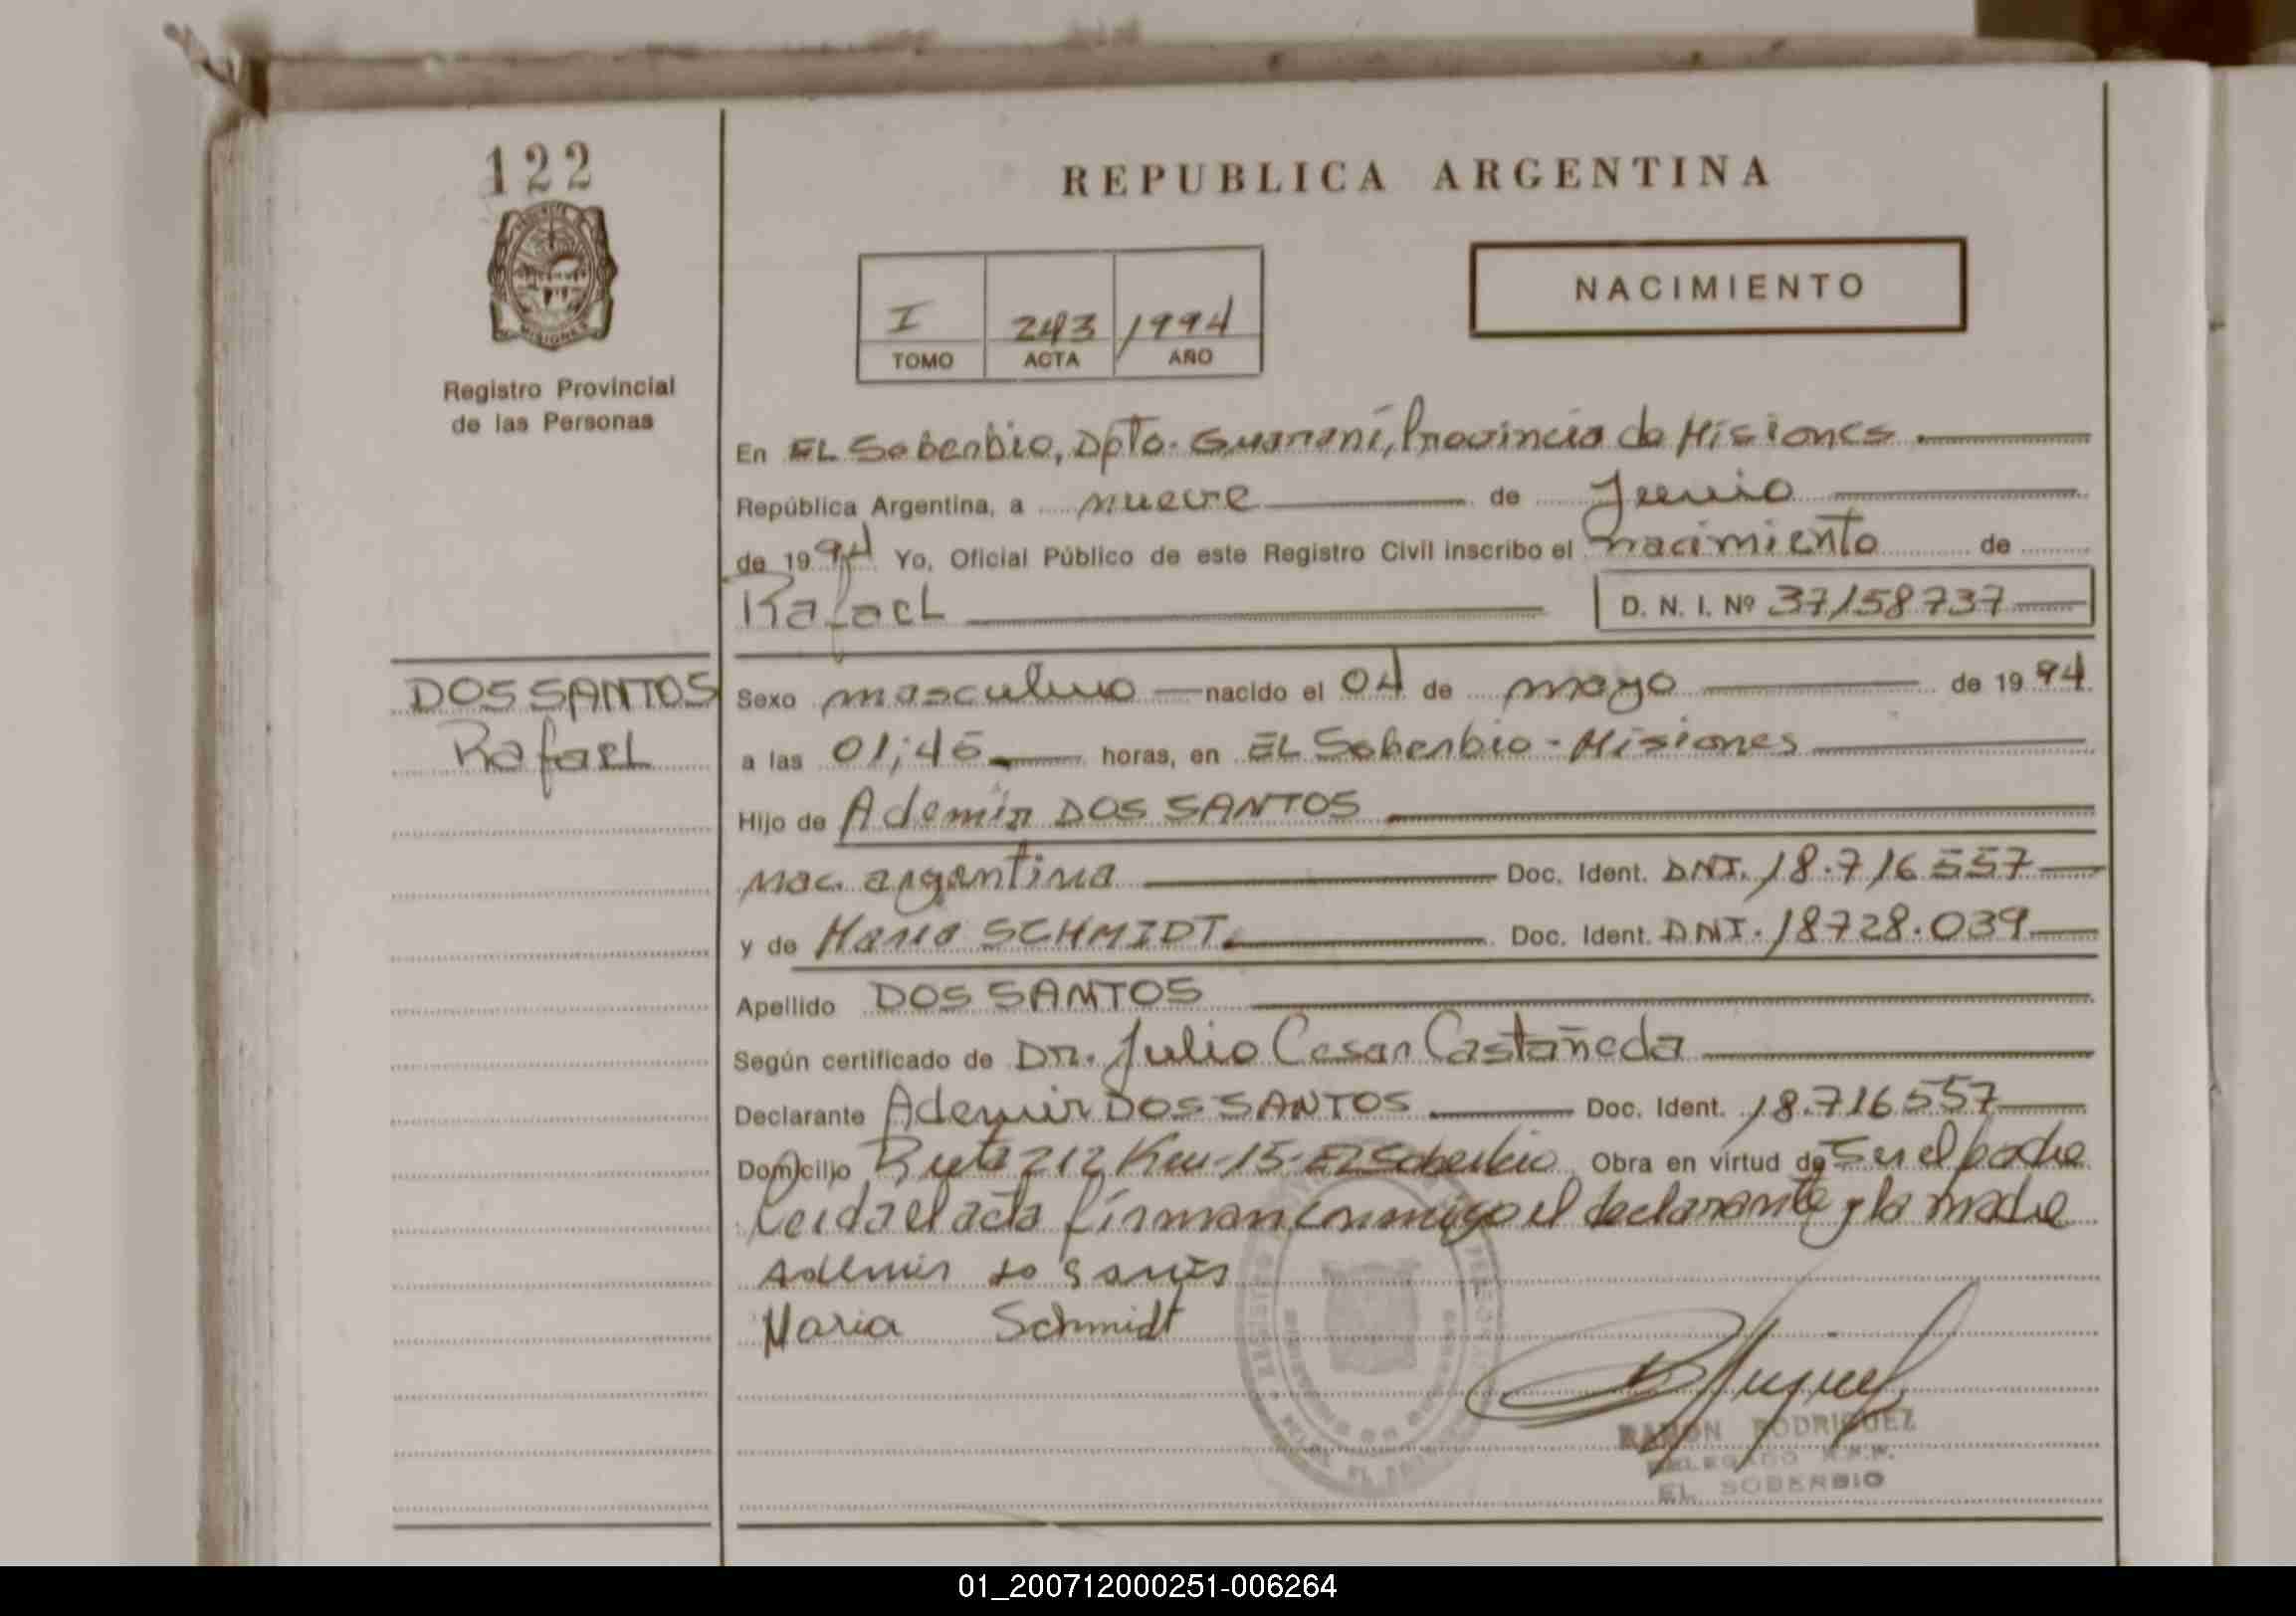 122
REPUBLICA ARGENTINA
MISIONES
Registro Provincial
de las Personas
I 243 1994
TOMO ACTA AÑO
NACIMIENTO
En EL Soberbio, Dpto. Guaraní, Provincia de Misiones.
República Argentina, a nueve de Junio
de 1994 Yo, Oficial Público de este Registro Civil inscribo el nacimiento de
Rafael D. N. I. Nº 37158737
DOS SANTOS
Rafael
Sexo masculino nacido el 04 de mayo de 1994
a las 01:45 horas, en EL Soberbio - Misiones
Hijo de Ademir DOS SANTOS
nac. argentina Doc. Ident. DNI. 18.716557
y de Maria SCHMIDT. Doc. Ident. DNI. 18728.039
Apellido DOS SANTOS
Según certificado de Dr. Julio Cesar Castañeda
Declarante Ademir DOS SANTOS Doc. Ident. 18.716557
Domicilio Ruta 212 Km-15-El Soberbio Obra en virtud de Ser el padre
Leida el acta firman conmigo el declarante y la madre
Ademir do s
Maria Schmidt
RAMON RODRIGUEZ
DELEGADO R.P.P.
EL SOBERBIO
01_200712000251-006264